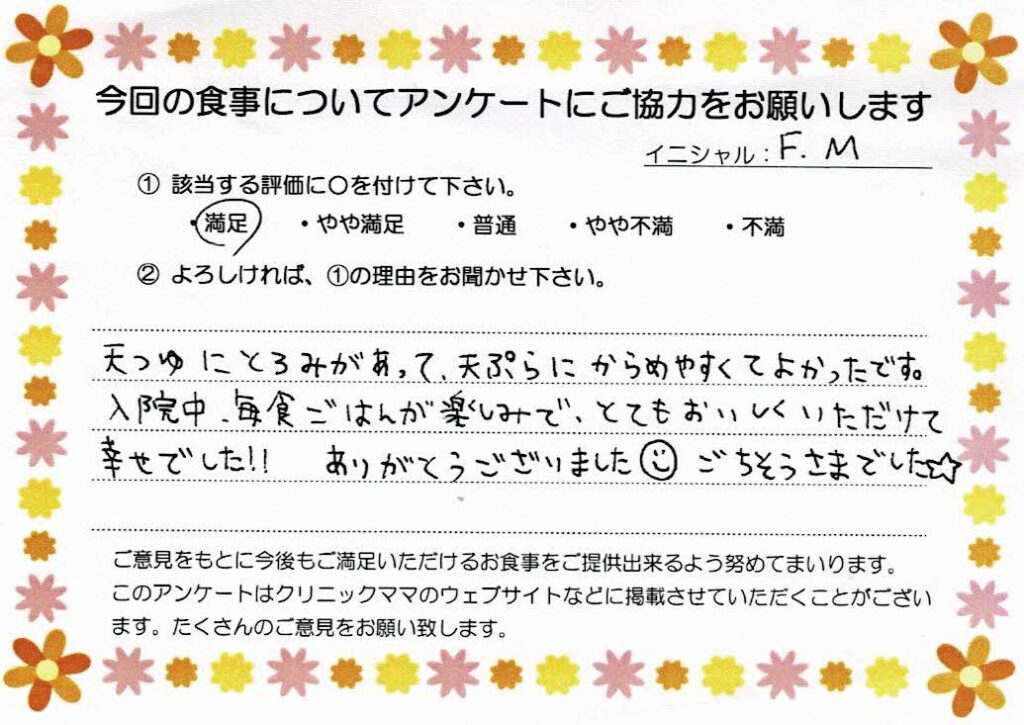 今回の食事についてアンケートにご協力をお願いします
イニシャル：F. M
① 該当する評価に〇を付けて下さい。
・満足 ・やや満足 ・普通 ・やや不満 ・不満
② よろしければ、①の理由をお聞かせ下さい。
天つゆにとろみがあって、天ぷらにからめやすくてよかったです。
入院中、毎食ごはんが楽しみで、とてもおいしくいただけて
幸せでした!! ありがとうございました☺ ごちそうさまでした☆
ご意見をもとに今後もご満足いただけるお食事をご提供出来るよう努めてまいります。
このアンケートはクリニックママのウェブサイトなどに掲載させていただくことがござい
ます。たくさんのご意見をお願い致します。